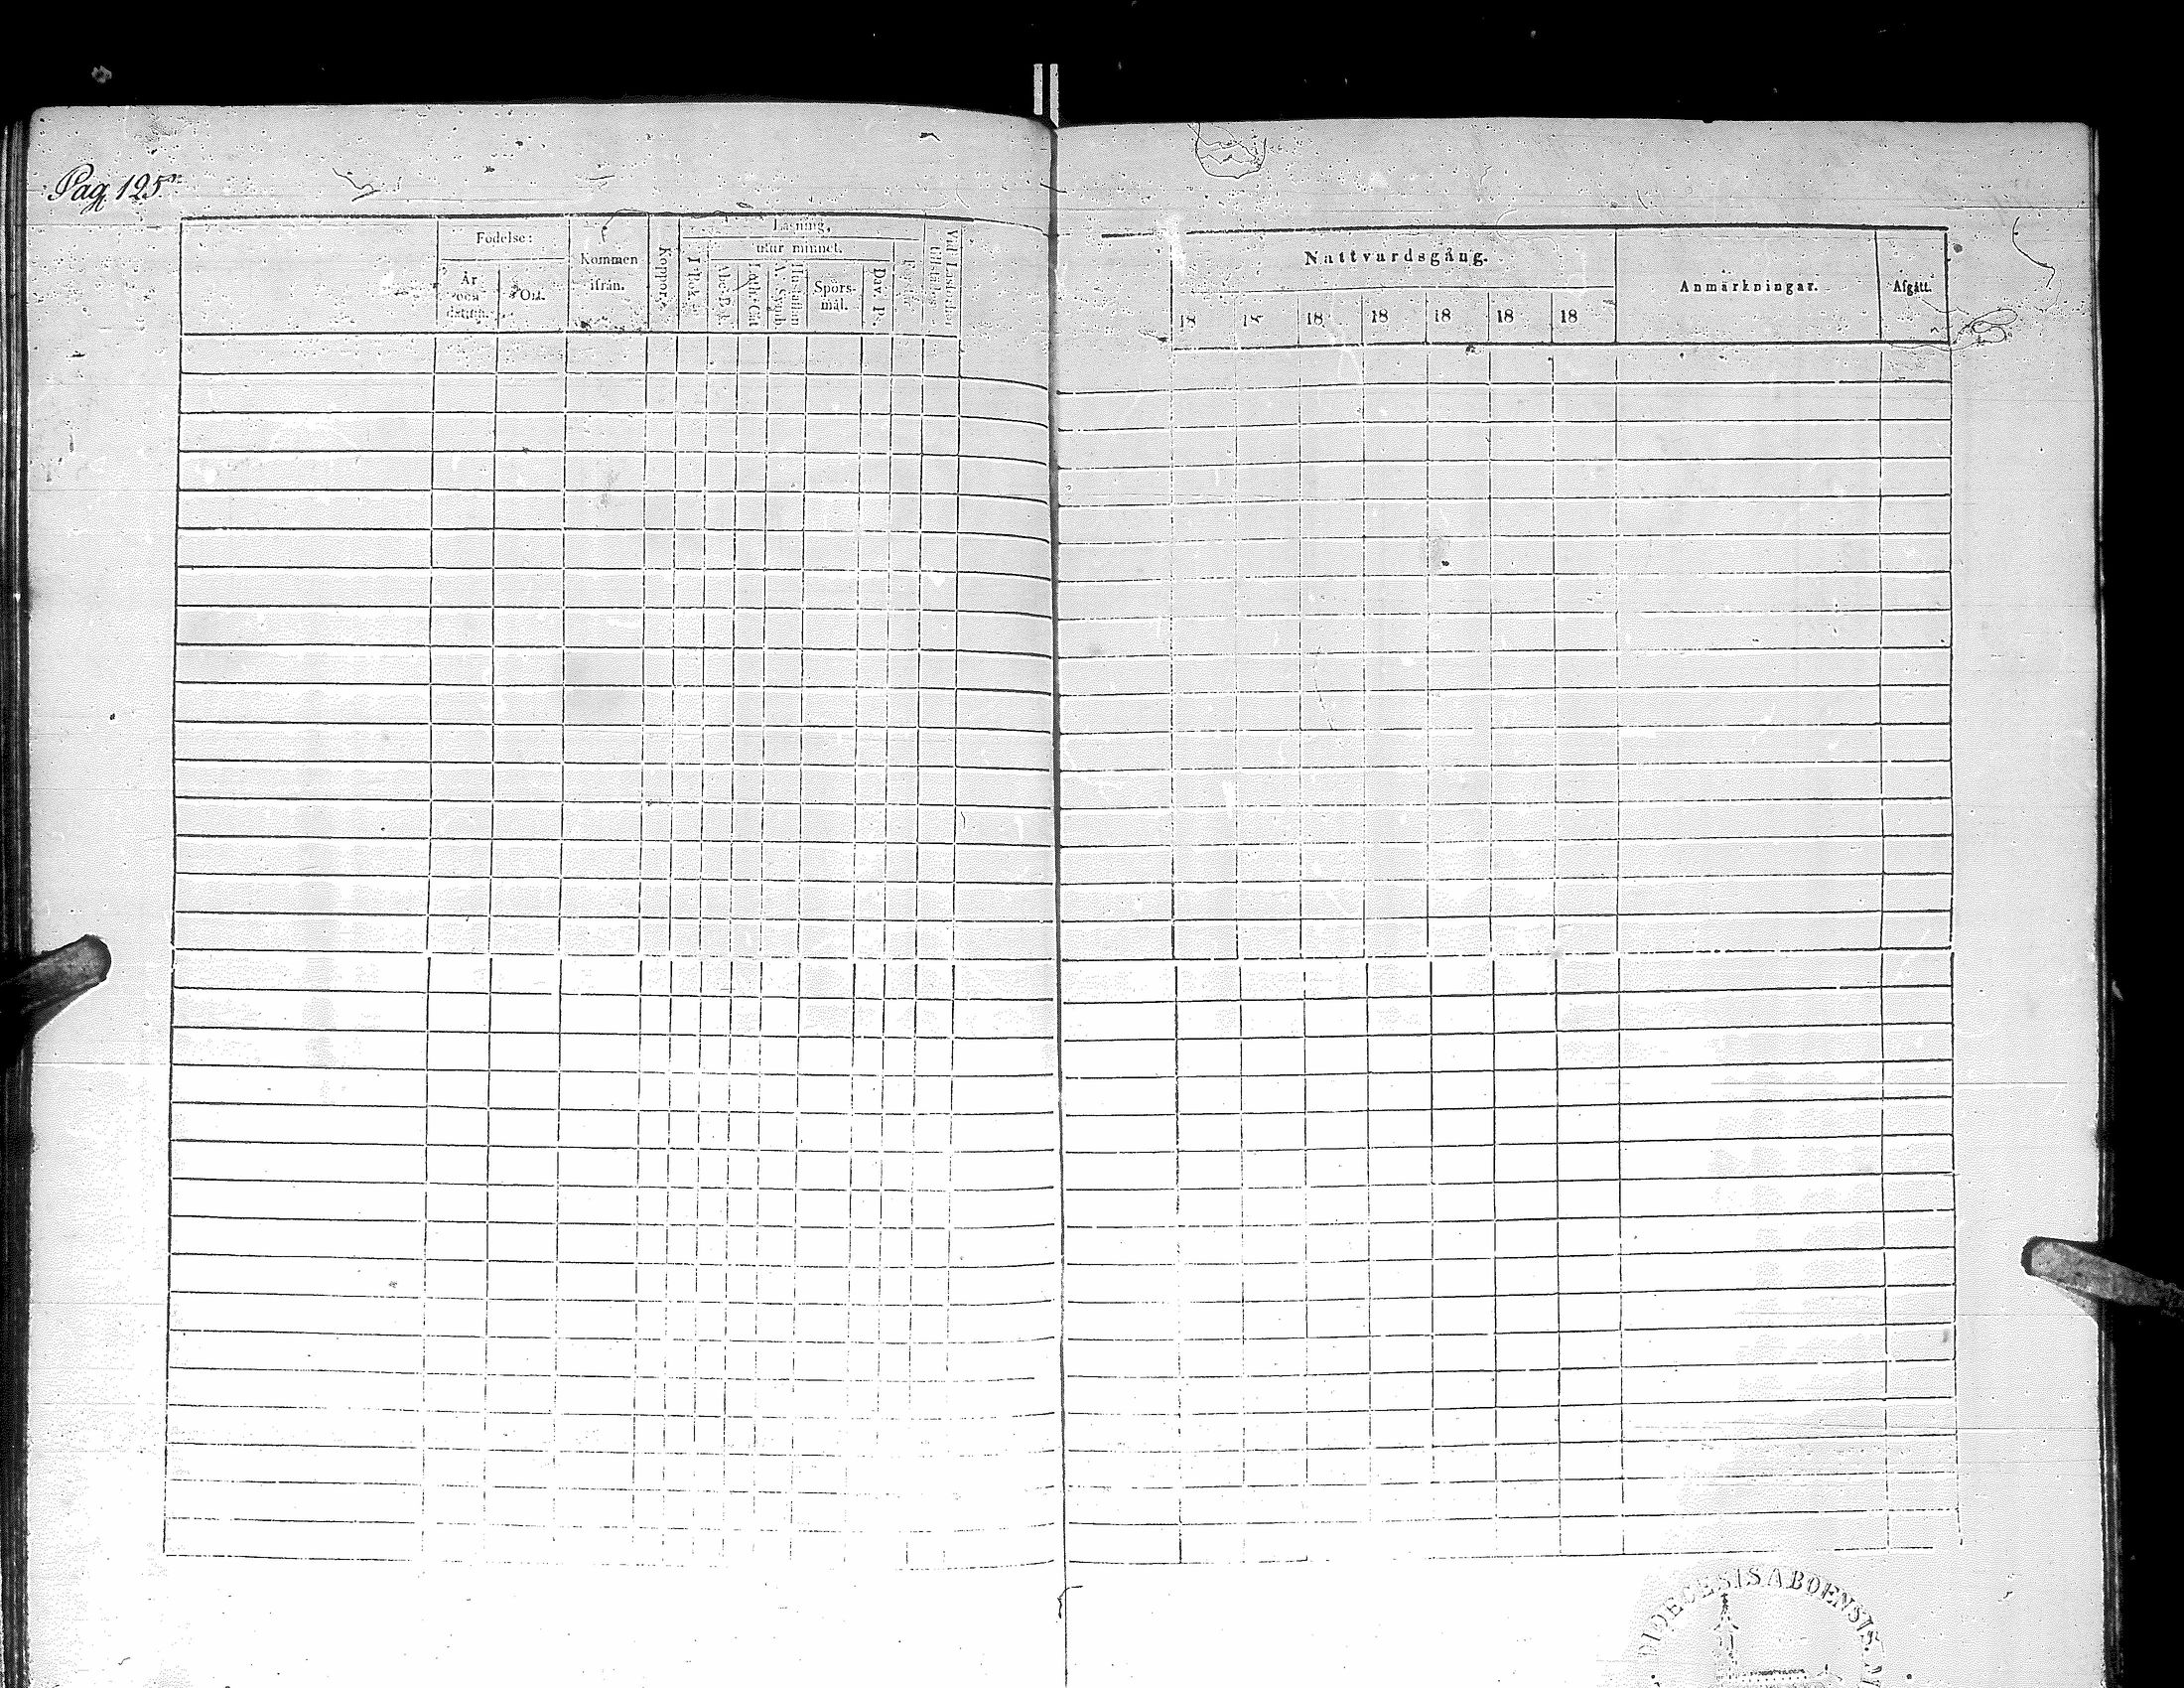 Pag 125.
Födelse:
År och datum.
Ort.
Kommen ifrån.
Koppor.
Läsning,
I Bok.
utur minnet.
Abc-B.k.
Luth. Cat
A. Symb.
Hustaflan
Spörs-mål.
Dav. P.
Nattvardsgång.
18 18 18 18 18 18 18
Anmärkningar.
Afgått.
DIOECESIS ABOENSIS.